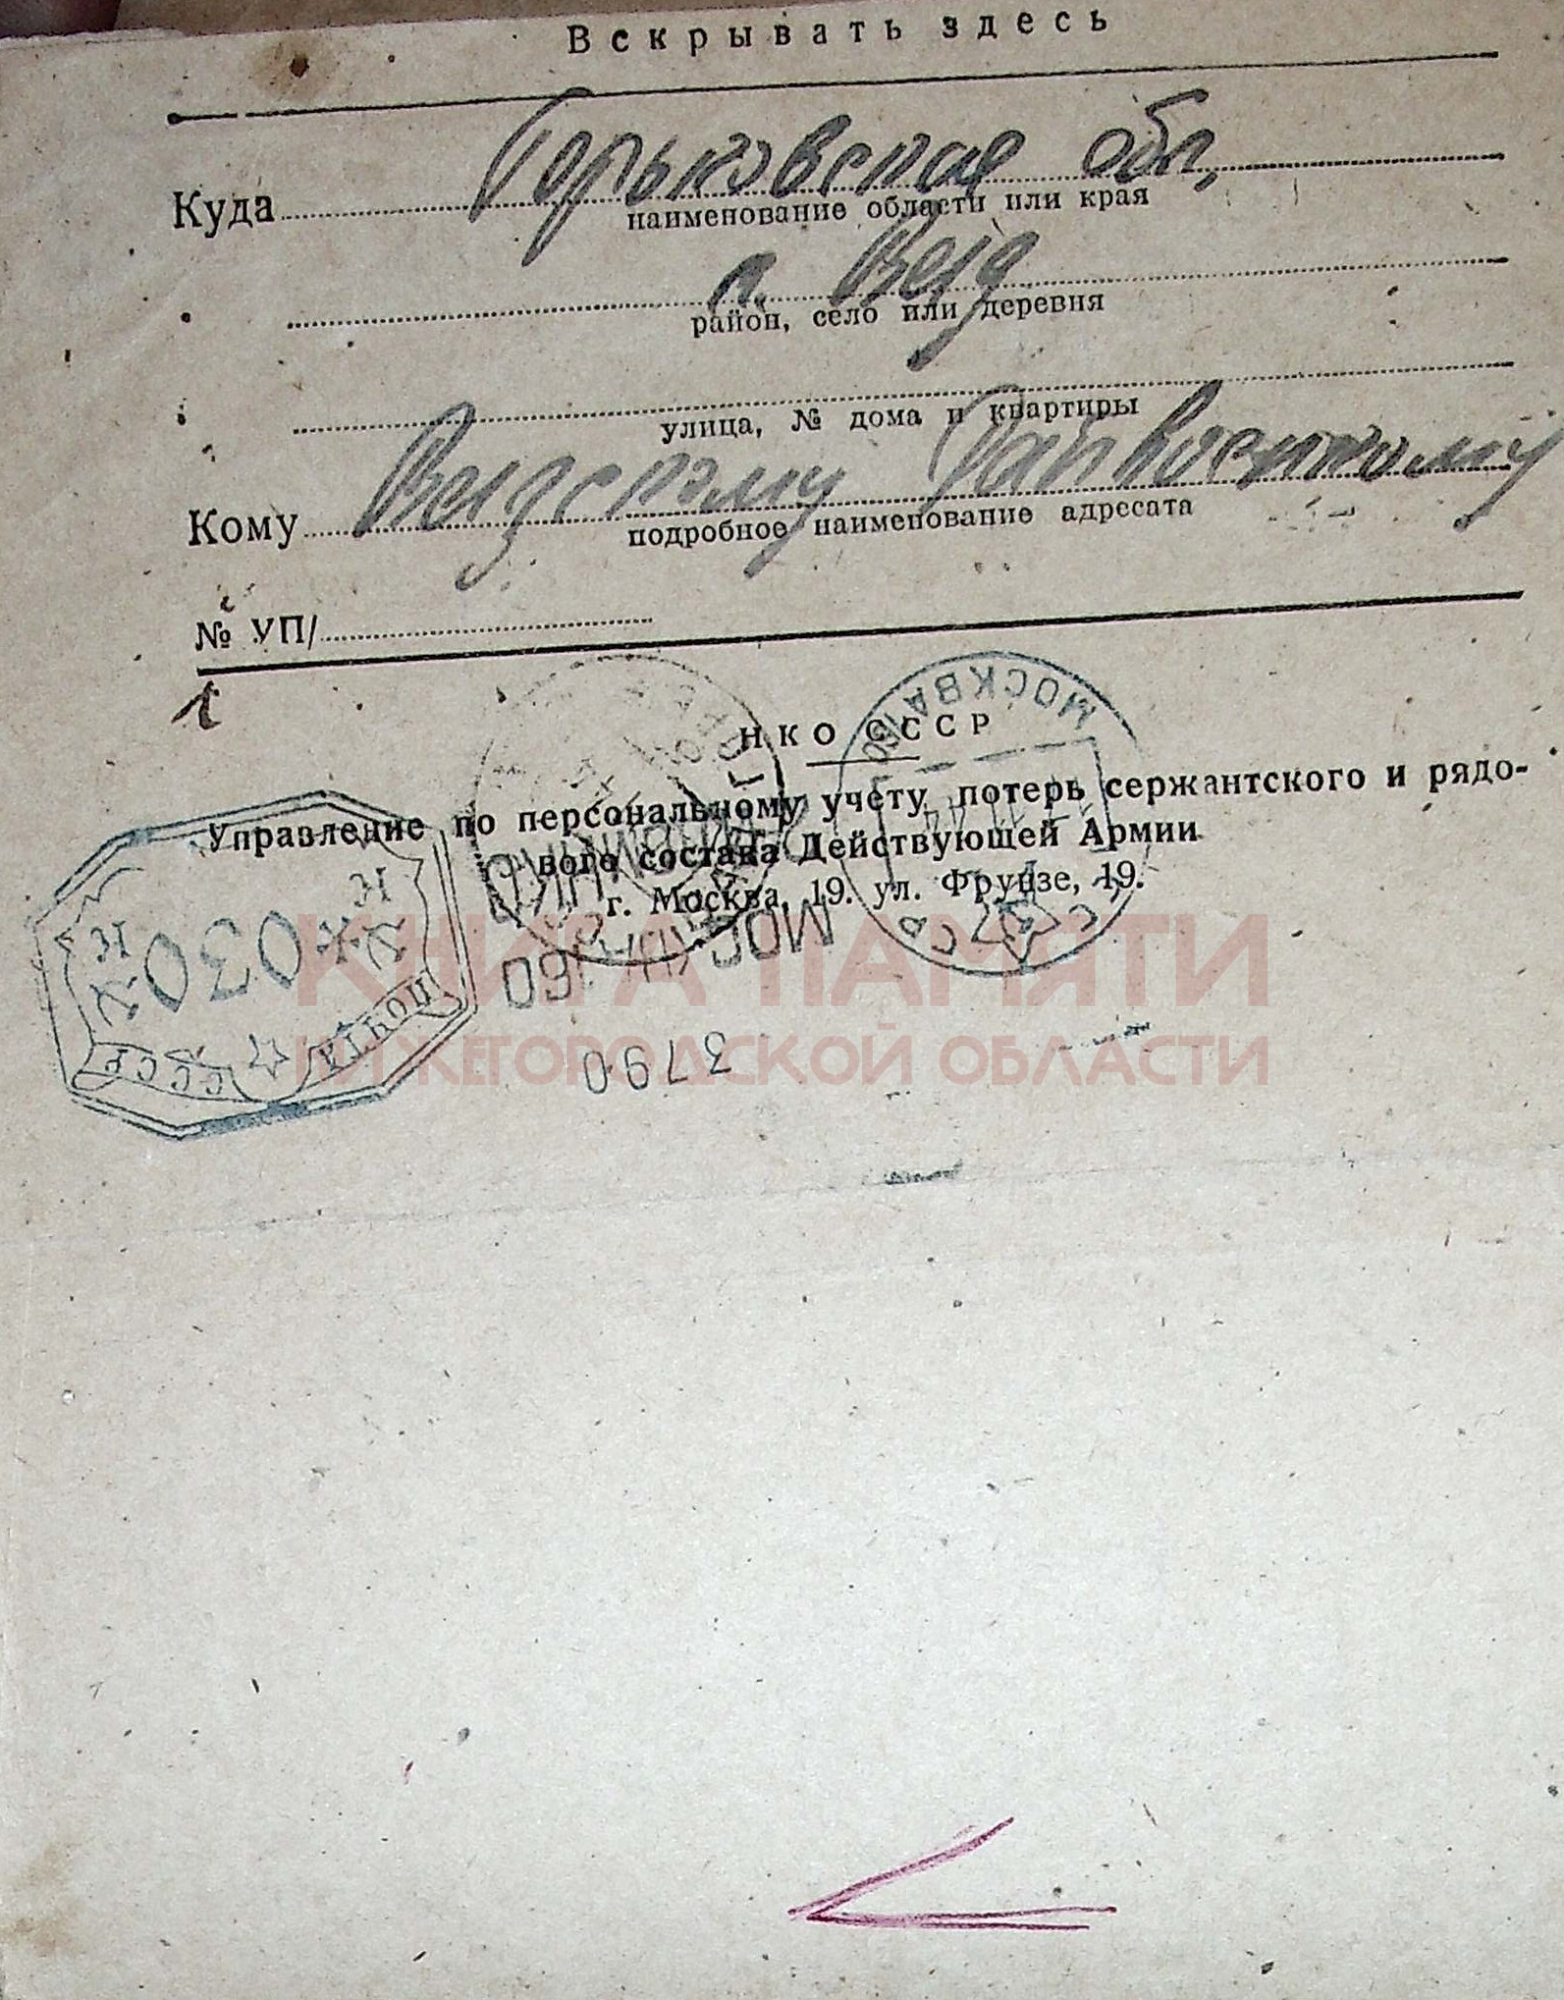 Вскрывать здесь
Куда Горьковская обл,
наименование области или края
п. Вад
район, село или деревня
улица, № дома и квартиры
Кому Вадскому Райвоенкому
подробное наименование адресата
№ УП/
НКО СССР
Управление по персональному учету потерь сержантского и рядо-
вого состава Действующей Армии
г. Москва, 19. ул. Фрунзе, 19.
МОСКВА
СССР
030
ПОЧТА СССР
160
3790
КНИГА ПАМЯТИ
НИЖЕГОРОДСКОЙ ОБЛАСТИ